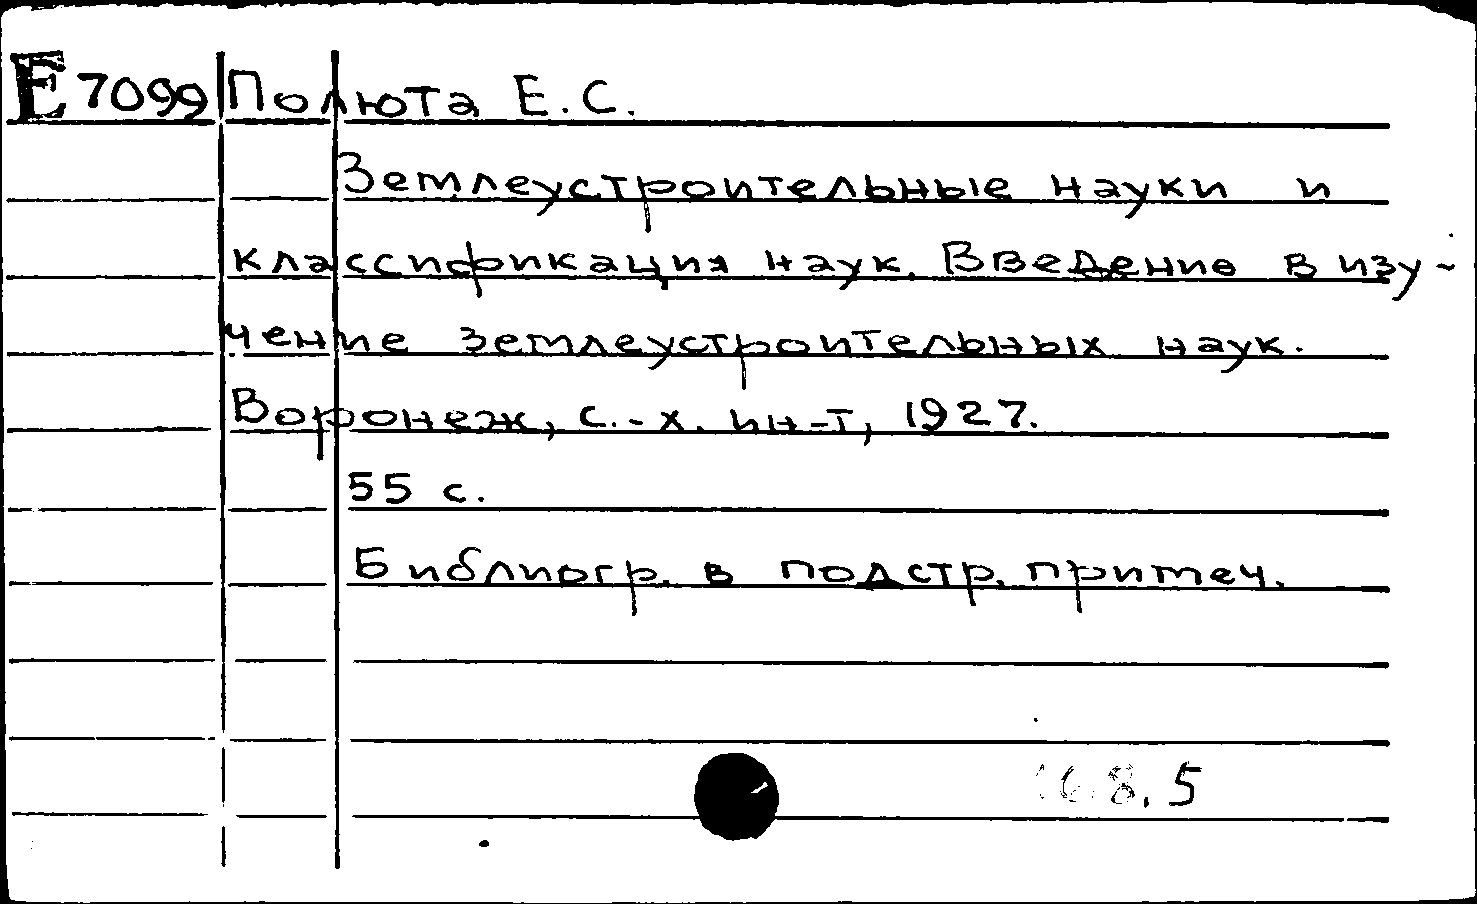 Е 7099 Полюта Е.С.
Землеустроительные науки и
классификация наук. Введение в изу-
чение землеустроительных наук.
Воронеж, с.-х. ин-т, 1927.
55 с.
Библиогр. в подстр. примеч.
16.8.5